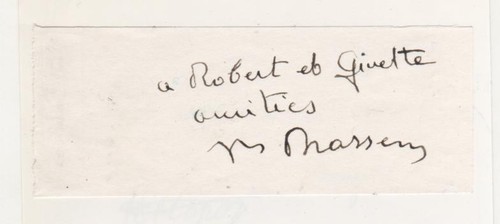 a Robert et Ginette
amitiés